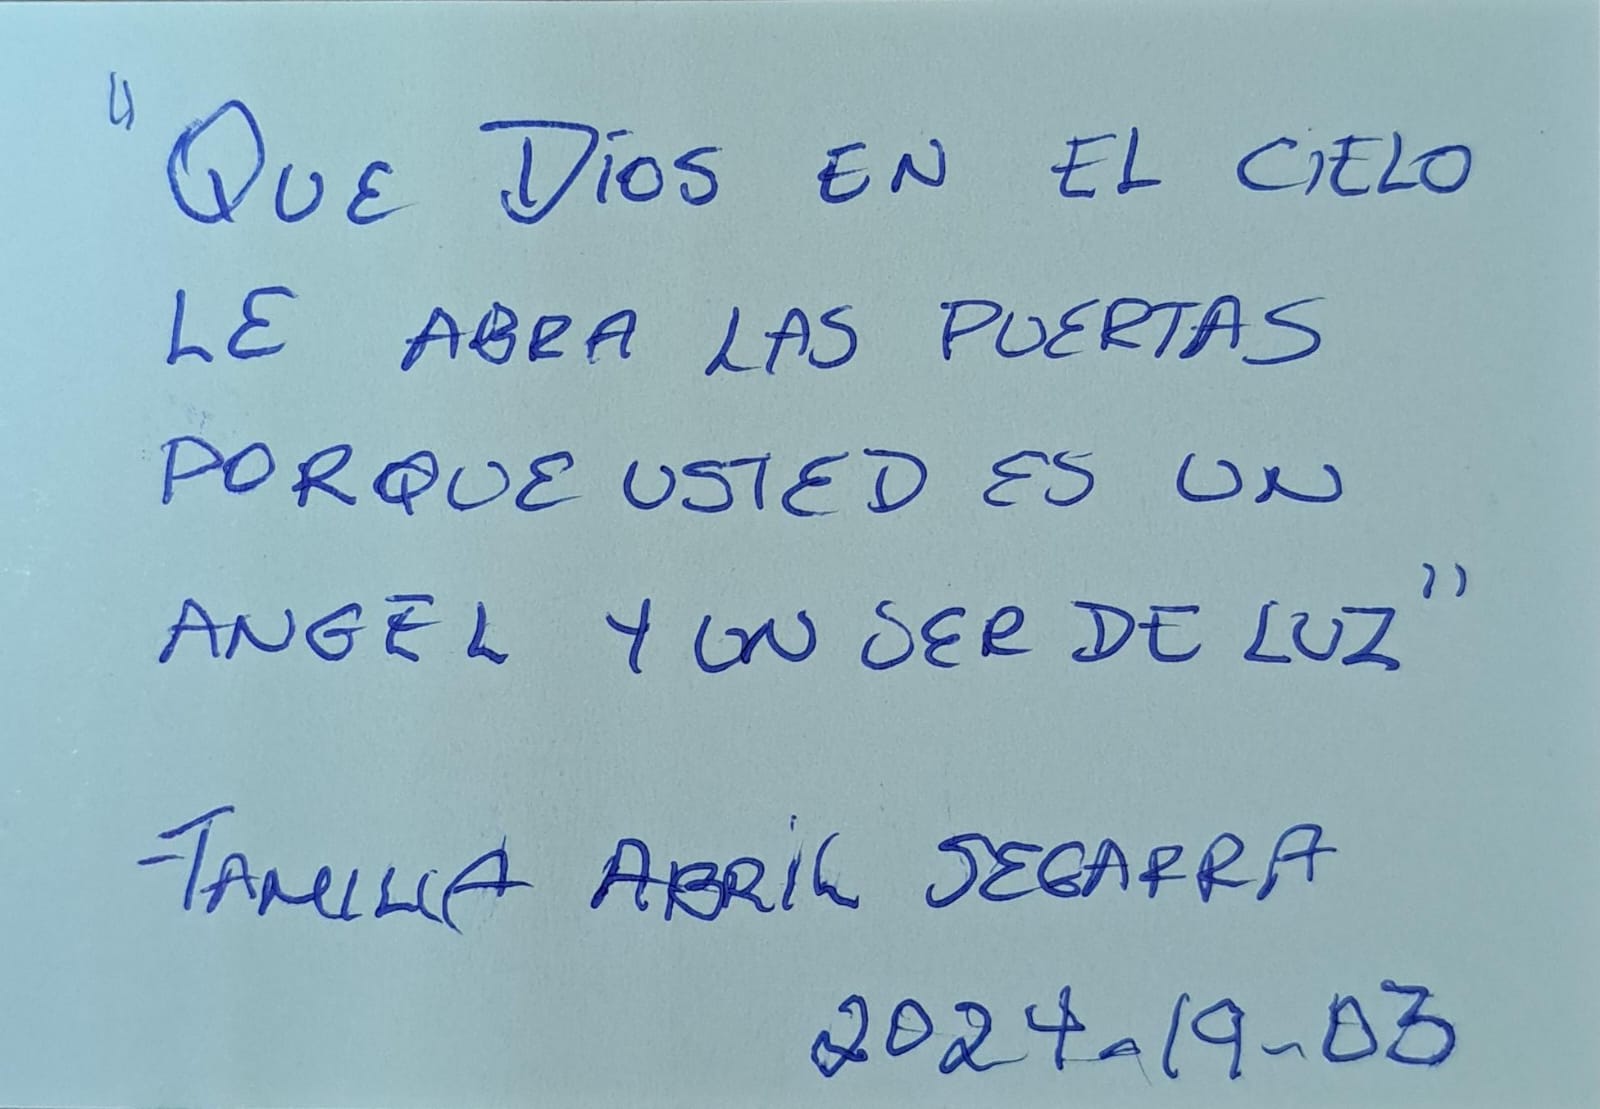 "QUE DiOS EN EL CIELO
LE ABRA LAS PUERTAS
PORQUE USTED ES UN
ANGEL Y UN SER DE LUZ"
FAMILIA ABRiL SEGARRA
2024-19-03